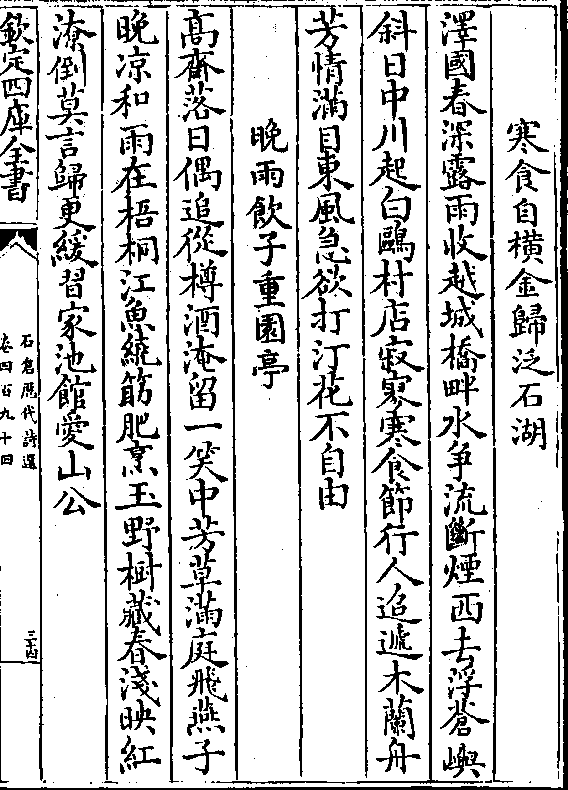 寒食自横金歸泛石湖
澤國春深露雨收越城橋畔水爭流斷煙西去浮蒼嶼
斜日中川起白鷗村店寂寥寒食節行人迢遞木蘭舟
芳情滿目東風急欲打汀花不自由
晚雨飲子重園亭
高齋落日偶追從樽酒淹留一笑中芳草滿庭飛燕子
晚凉和雨在梧桐江魚繞筯肥烹玉野樹藏春淺映紅
潦倒莫言歸更緩習家池館愛山公
欽定四庫全書
石倉歷代詩選
卷四百九十四
三十四